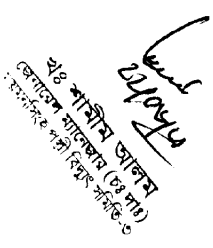 মোঃ শামীম আলম
জেনারেল ম্যানেজার (চঃ দাঃ)
ময়মনসিংহ পল্লী বিদ্যুৎ সমিতি-৩